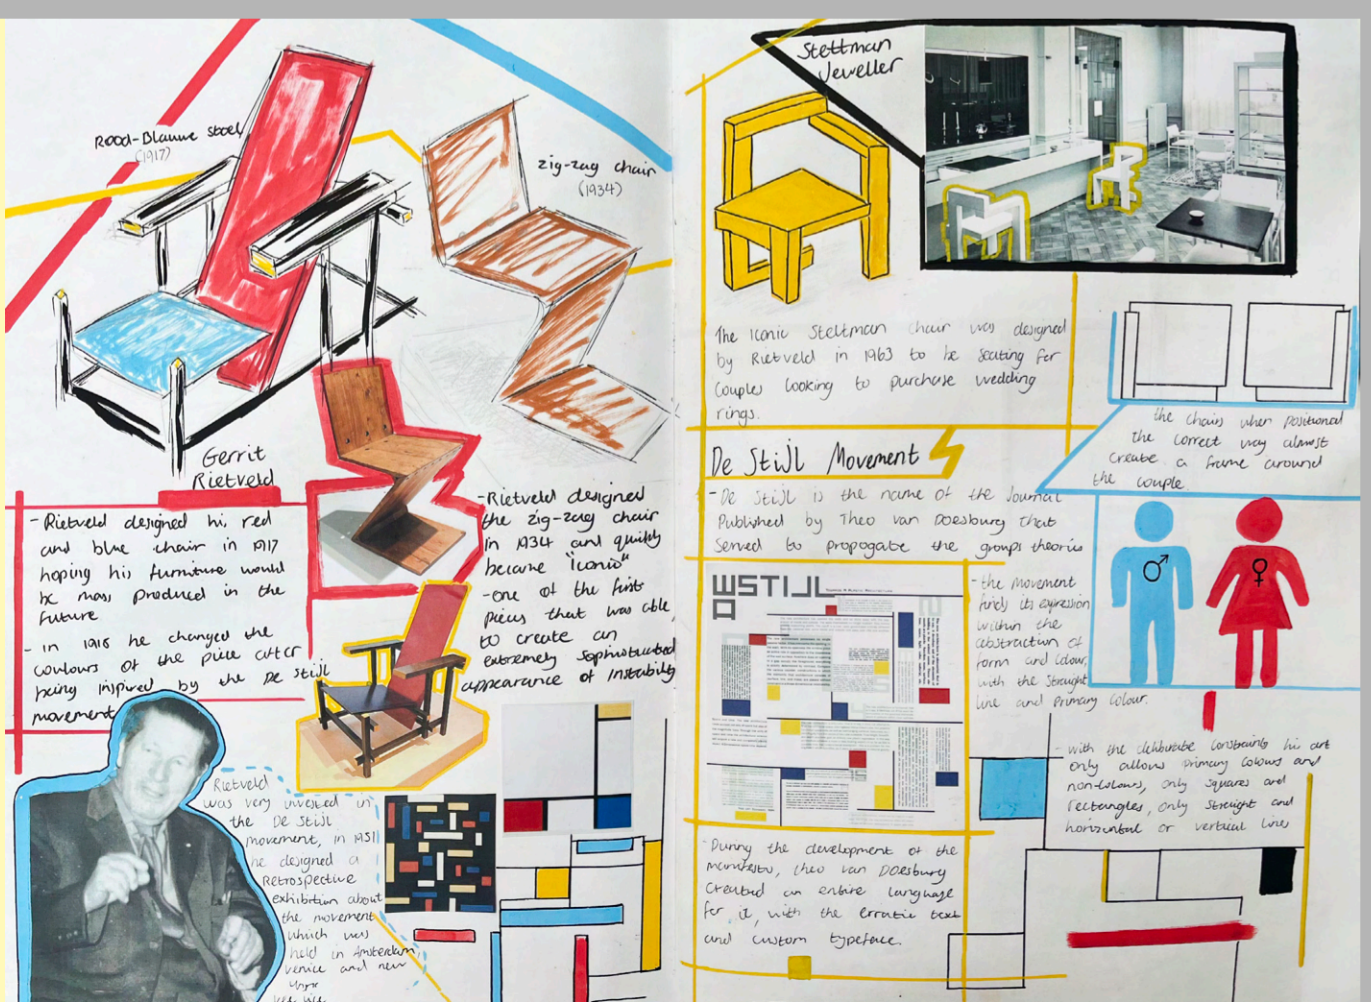 Rood-Blauwe stoel
(1917)
zig-zag chair
(1934)
Gerrit
Rietveld
- Rietveld designed his red
and blue chair in 1917
hoping his furniture would
be mass produced in the
future
- in 1918 he changed the
colours of the piece after
being inspired by the De Stijl
movement
- Rietveld designed
the zig-zag chair
in 1934 and quickly
became "iconic"
- one of the first
pieces that was able
to create an
extremely sophisticated
appearance of instability
Rietveld
was very invested in
the De Stijl
movement, in 1951
he designed a
Retrospective
exhibition about
the movement
which was
held in Amsterdam,
Venice and new
York
Stettman
Jeweller
The Iconic Steltman chair was designed
by Rietveld in 1963 to be seating for
couples looking to purchase wedding
rings.
the chairs when positioned
the correct way almost
create a frame around
the couple
De Stijl Movement
- De Stijl is the name of the Journal
Published by Theo van Doesburg that
served to propogate the groups theories
- the movement
finds its expression
within the
abstraction of
form and colour,
with the straight
line and primary colour.
- with the deliberate constraints his art
only allows primary colours and
non-colours, only squares and
rectangles, only straight and
horizontal or vertical lines
- During the development of the
manifesto, theo van Doesburg
created an entire language
for it, with the erratic text
and custom typeface.